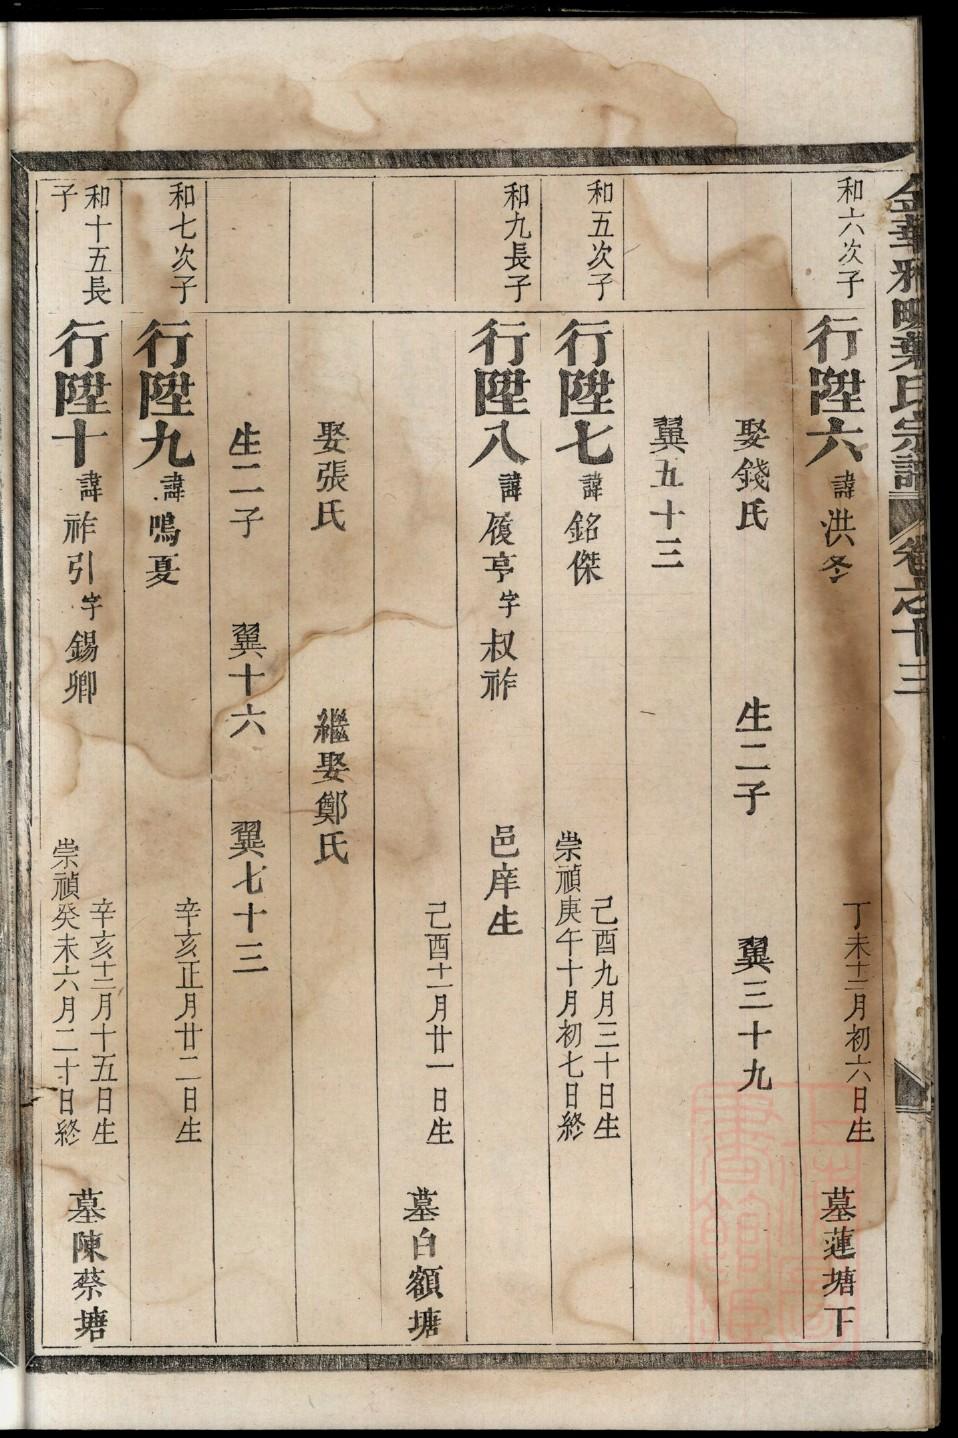 金華雅畈葉氏宗譜 卷之十三
和六次子
行陞六 諱 洪冬 丁未十二月初六日生 墓蓮塘下
娶錢氏 生二子 翼三十九
翼五十三
和五次子
行陞七 諱 銘傑 己酉九月三十日生
崇禎庚午十月初七日終
和九長子
行陞八 諱 履亨 字 叔祚 邑庠生
己酉十一月廿一日生 墓白額塘
娶張氏 繼娶鄭氏
生二子 翼十六 翼七十三
和七次子
行陞九 諱 鳴夏 辛亥正月廿二日生
和十五長
子
行陞十 諱 祚引 字 錫卿 辛亥十二月十五日生
崇禎癸未六月二十日終 墓陳蔡塘